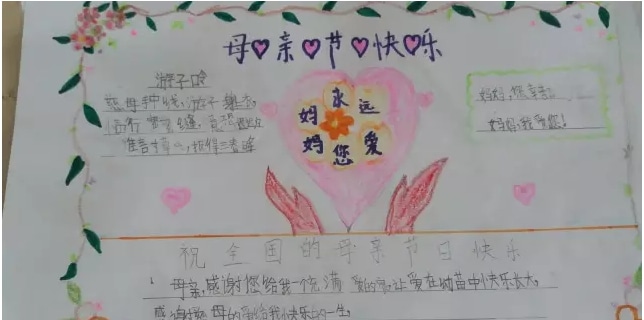 母亲节快乐
游子吟
慈母手中线,游子身上衣,
临行密密缝,意恐迟迟归
谁言寸草心,报得三春晖
妈妈永远爱您
妈妈,您辛苦
妈妈,我爱您!
祝全国的母亲节日快乐
母亲,感谢您给我一个充满爱的家,让爱在幼苗中快乐长大,
感谢 母的 给我快乐的一生,